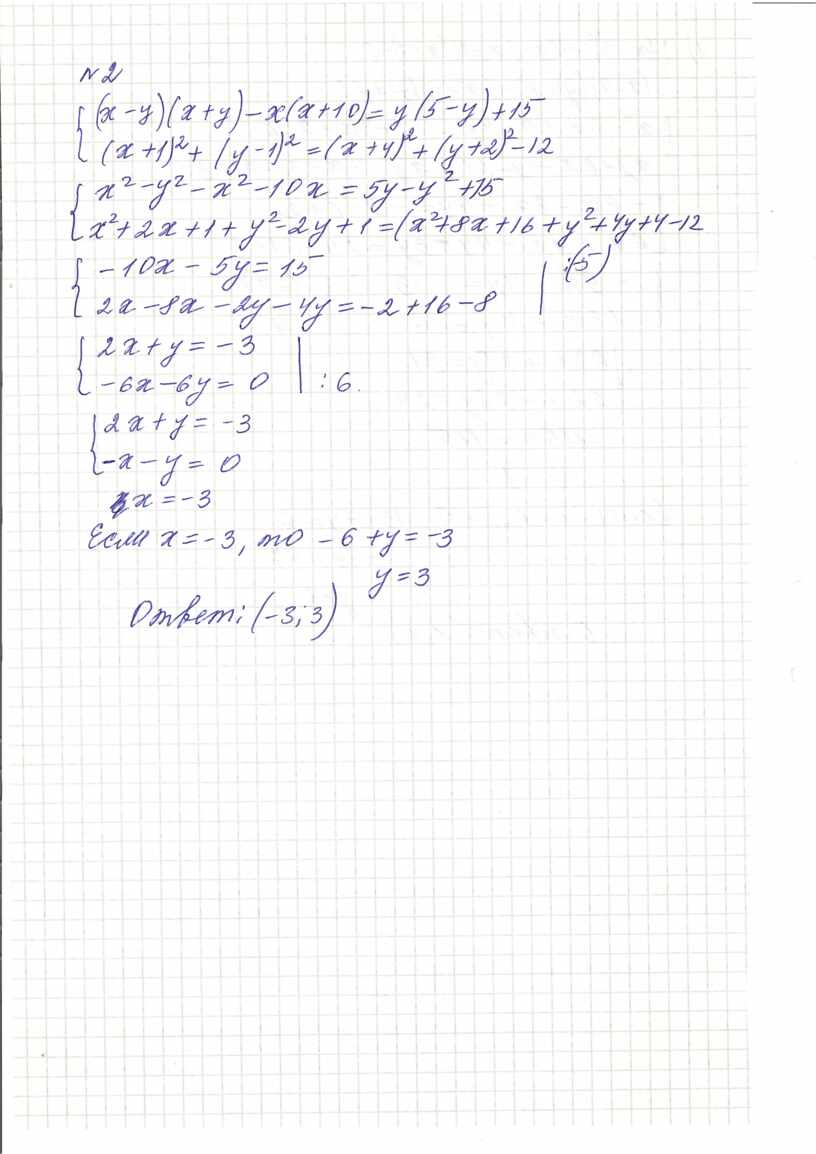 №2
{ (x-y)(x+y)-x(x+10)=y(5-y)+15
(x+1)²+(y-1)²=(x+4)²+(y+2)²-12
{ x²-y²-x²-10x=5y-y²+15
x²+2x+1+y²-2y+1=(x²+8x+16+y²+4y+4-12
{ -10x-5y=15 | :(5)
2x-8x-2y-4y=-2+16-8
{ 2x+y=-3
-6x-6y=0 | :6.
{ 2x+y=-3
-x-y=0
x=-3
Если x=-3, то -6+y=-3
y=3
Ответ: (-3;3)